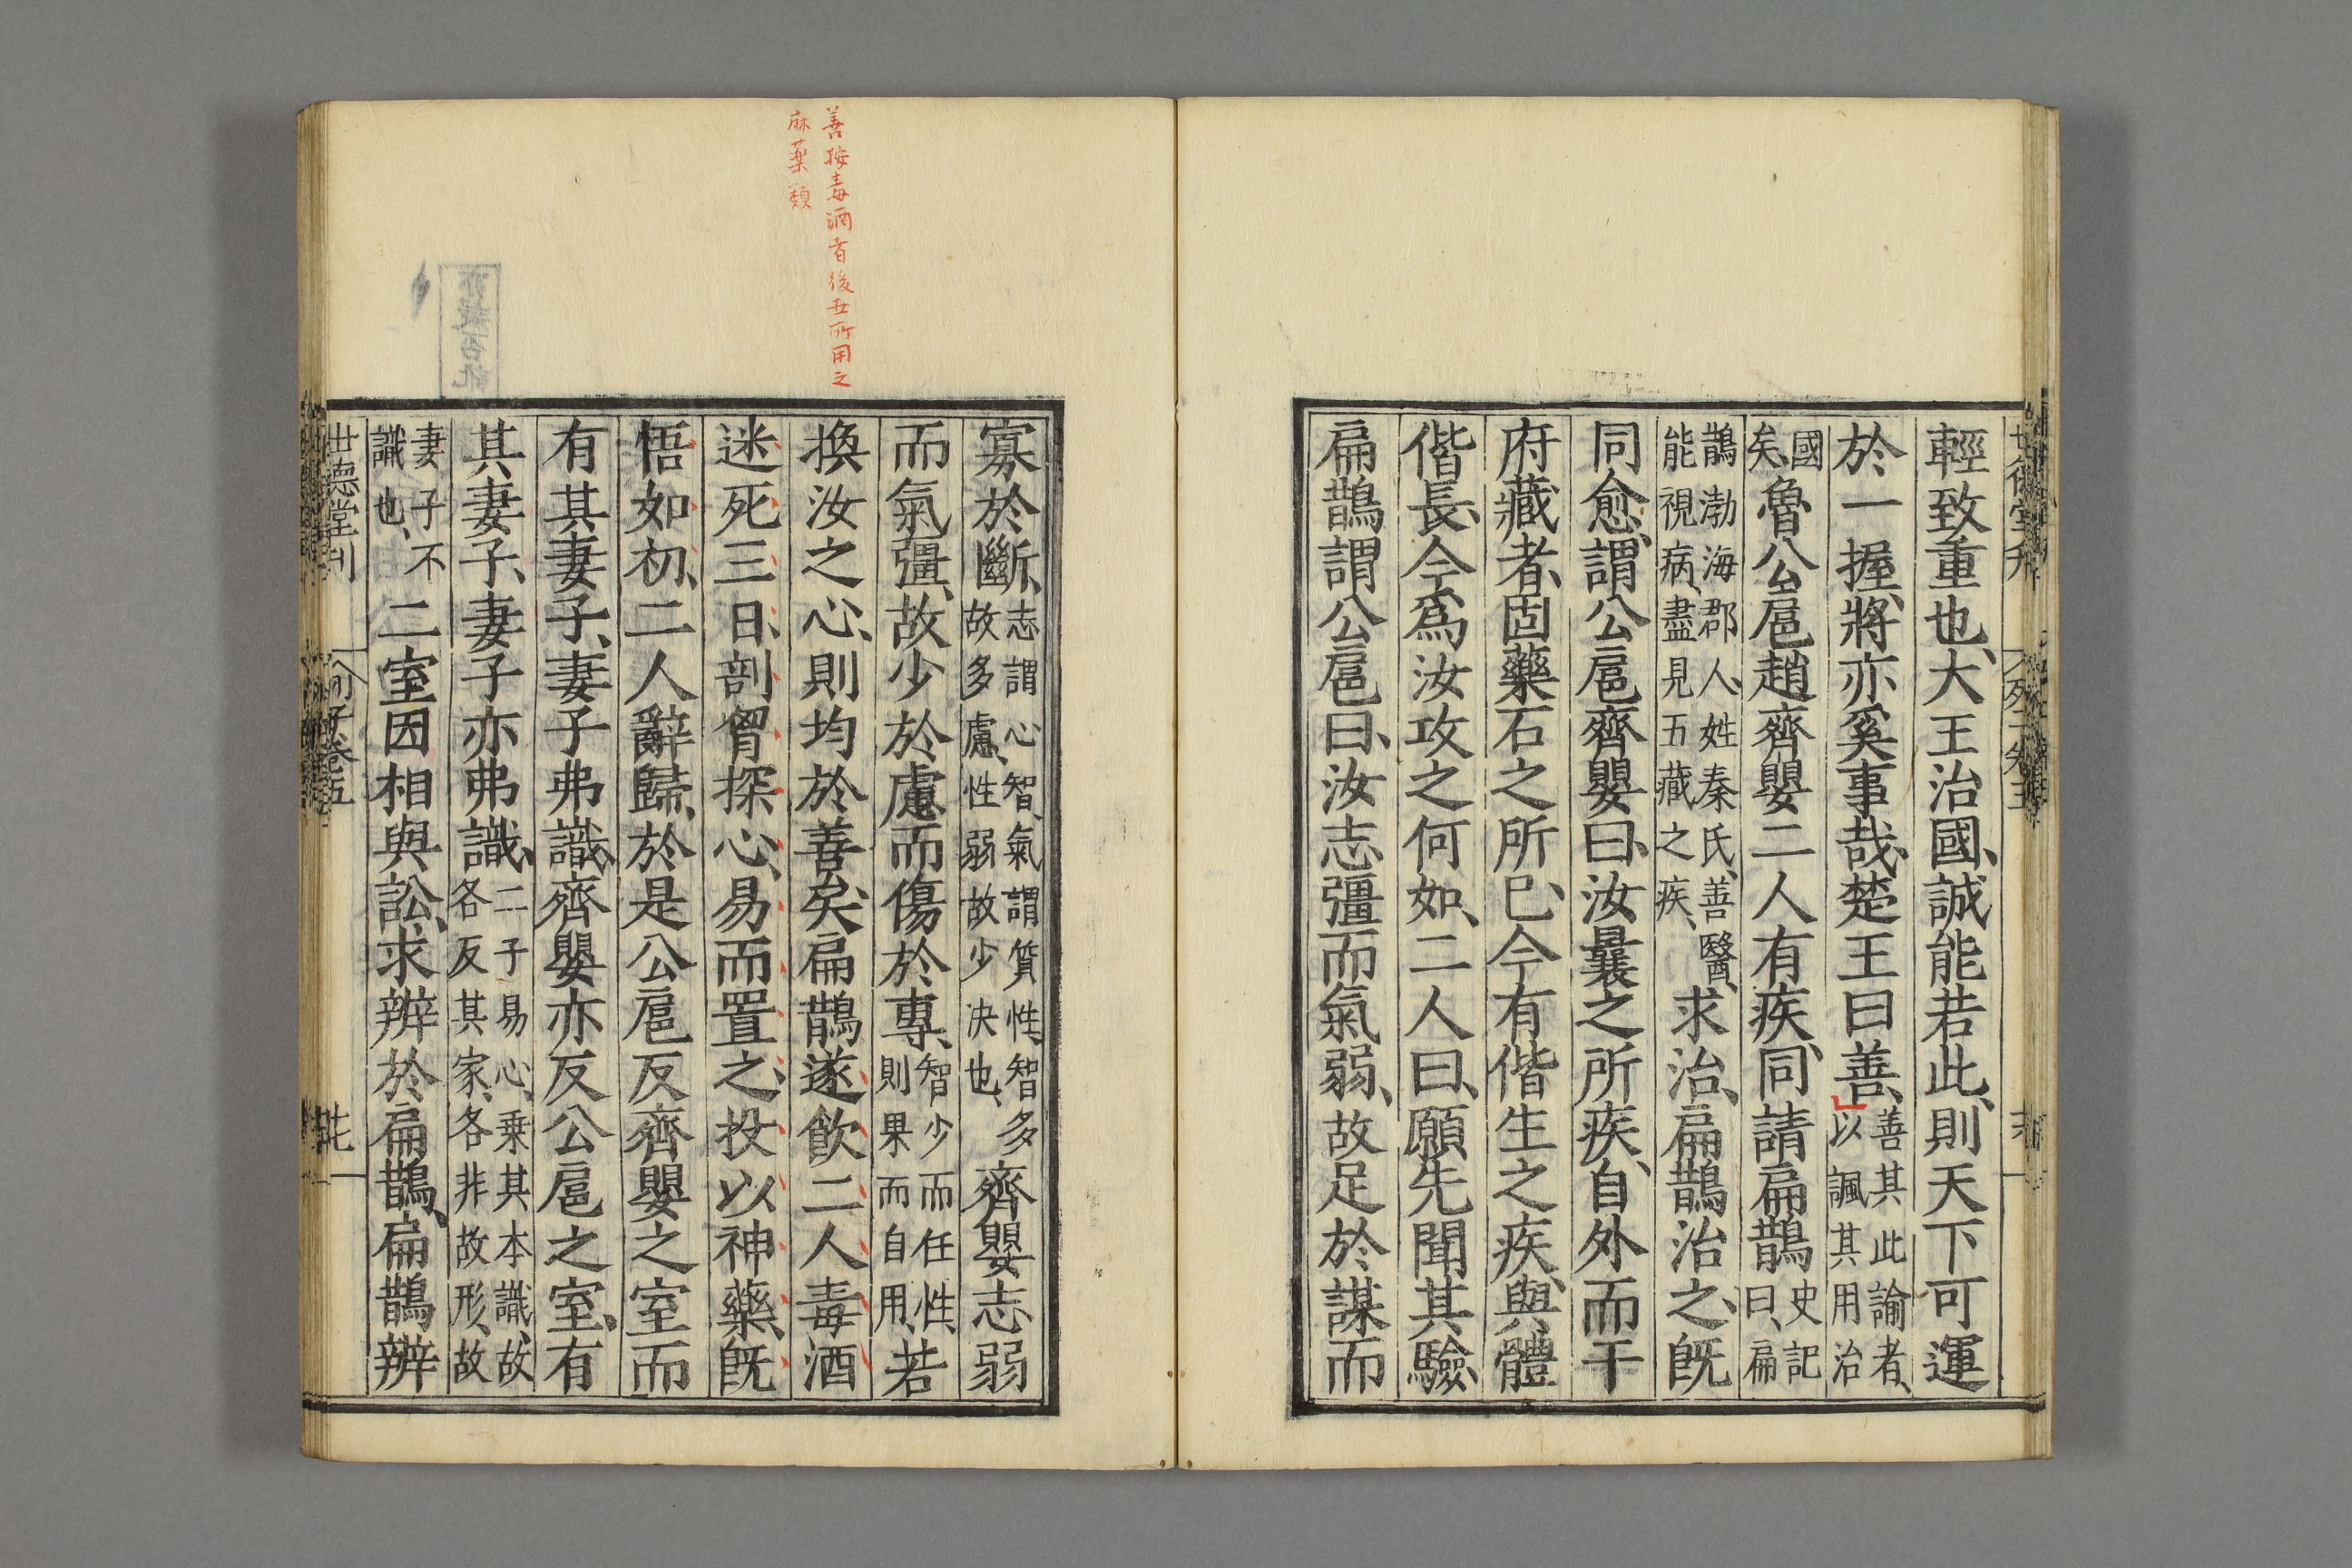 輕致重也、大王治國、誠能若此、則天下可運
於一握、將亦奚事哉、楚王曰善、善其此諭者、以諷其用治
國矣、魯公扈趙齊嬰二人有疾、同請扁鵲史記曰、扁
鵲渤海郡人、姓秦氏、善醫、能視病、盡見五藏之疾、求治、扁鵲治之、既
同愈、謂公扈齊嬰曰、汝曩之所疾、自外而干
府藏者、固藥石之所已、今有偕生之疾、與體
偕長、今爲汝攻之何如、二人曰、願先聞其驗、
扁鵲謂公扈曰、汝志彊而氣弱、故足於謀而
善按毒酒者後世所用之
麻藥類
寡於斷、志謂心智、氣謂質性、智多故多慮、性弱故少決也、齊嬰志弱
而氣彊、故少於慮而傷於專、智少而任性、則果而自用、若
換汝之心、則均於善矣、扁鵲遂飲二人毒酒
迷死三日、剖胷探心、易而置之、投以神藥、既
悟如初、二人辭歸、於是公扈反齊嬰之室而
有其妻子、妻子弗識、齊嬰亦反公扈之室、有
其妻子、妻子亦弗識、二子易心、乗其本識、故各反其家、各非故形、故
妻子不識也、二室因相與訟、求辨於扁鵲、扁鵲辨
世德堂刊 列子卷五 廿七